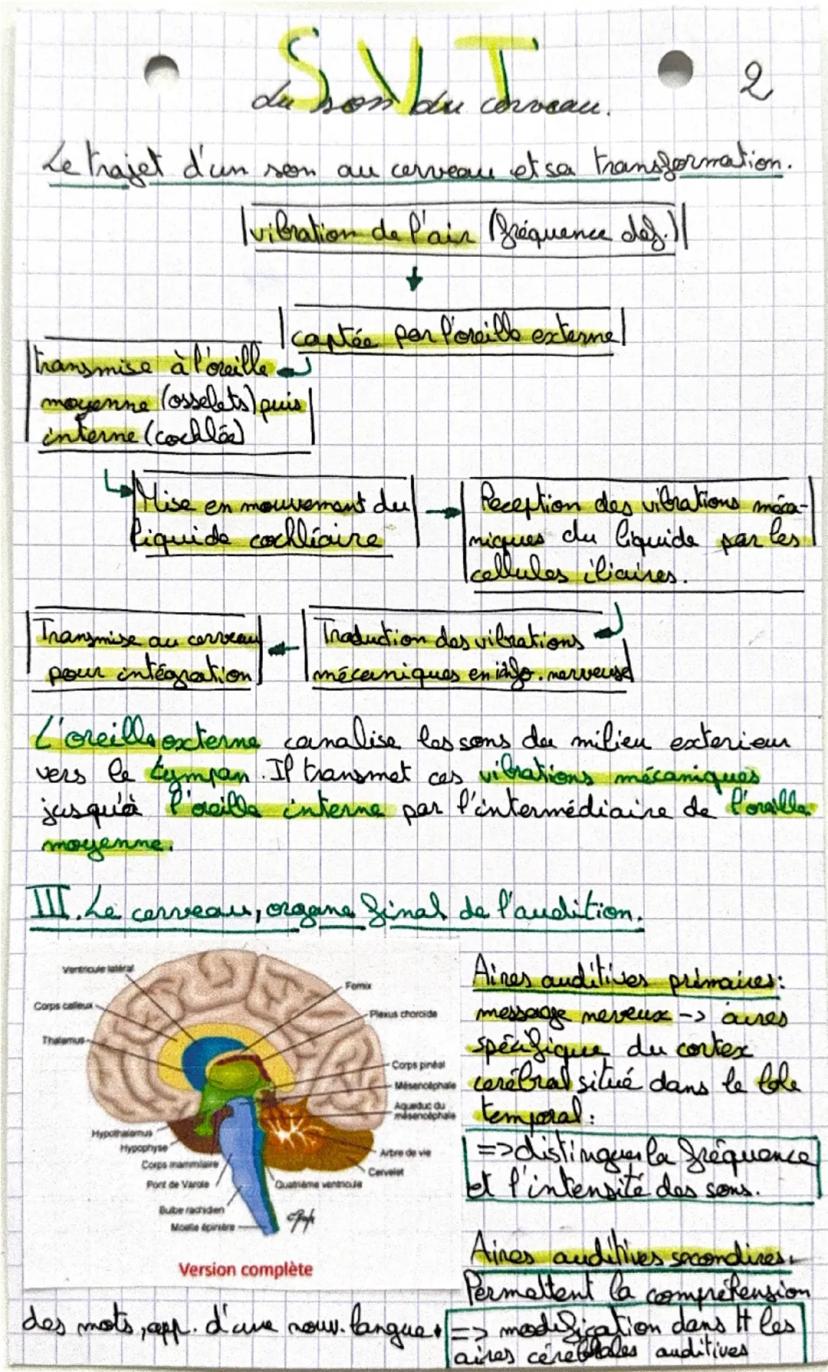 SVT
2
du son du cerveau.
Le trajet d'un son au cerveau et sa transformation.
vibration de l'air (fréquence déf.)
captée par l'oreille externe
transmise à l'oreille
moyenne (osselets) puis
interne (cochlée)
Mise en mouvement du
liquide cochléaire
Reception des vibrations méca-
niques du liquide par les
cellules iliaires.
Traduction des vibrations
mécaniques en info. nerveuse
Transmise au cerveau
pour intégration
L'oreille externe canalise les sons du milieu exterieur
vers le tympan. Il transmet ces vibrations mécaniques
jusqu'à l'oreille interne par l'intermédiaire de l'oreille
moyenne.
III. Le cerveau, organe final de l'audition.
Ventricule latéral
Corps calleux
Thalamus
Hypothalamus
Hypophyse
Corps mammilaire
Pont de Varole
Bulbe rachidien
Moelle épinière
Fornix
Plexus choroïde
Corps pinéal
Mésencéphale
Aqueduc du
mésencéphale
Arbre de vie
Cervelet
Quatrième ventricule
Version complète
Aires auditives primaires:
message nerveux -> aires
spécifique du cortex
cérébral situé dans le lobe
temporal:
=> distinguer la fréquence
et l'intensité des sons.
Aires auditives secondires.
Permettent la compréhension
des mots, app. d'une nouv. langue.
=> modification dans H les
aires cérébrales auditives